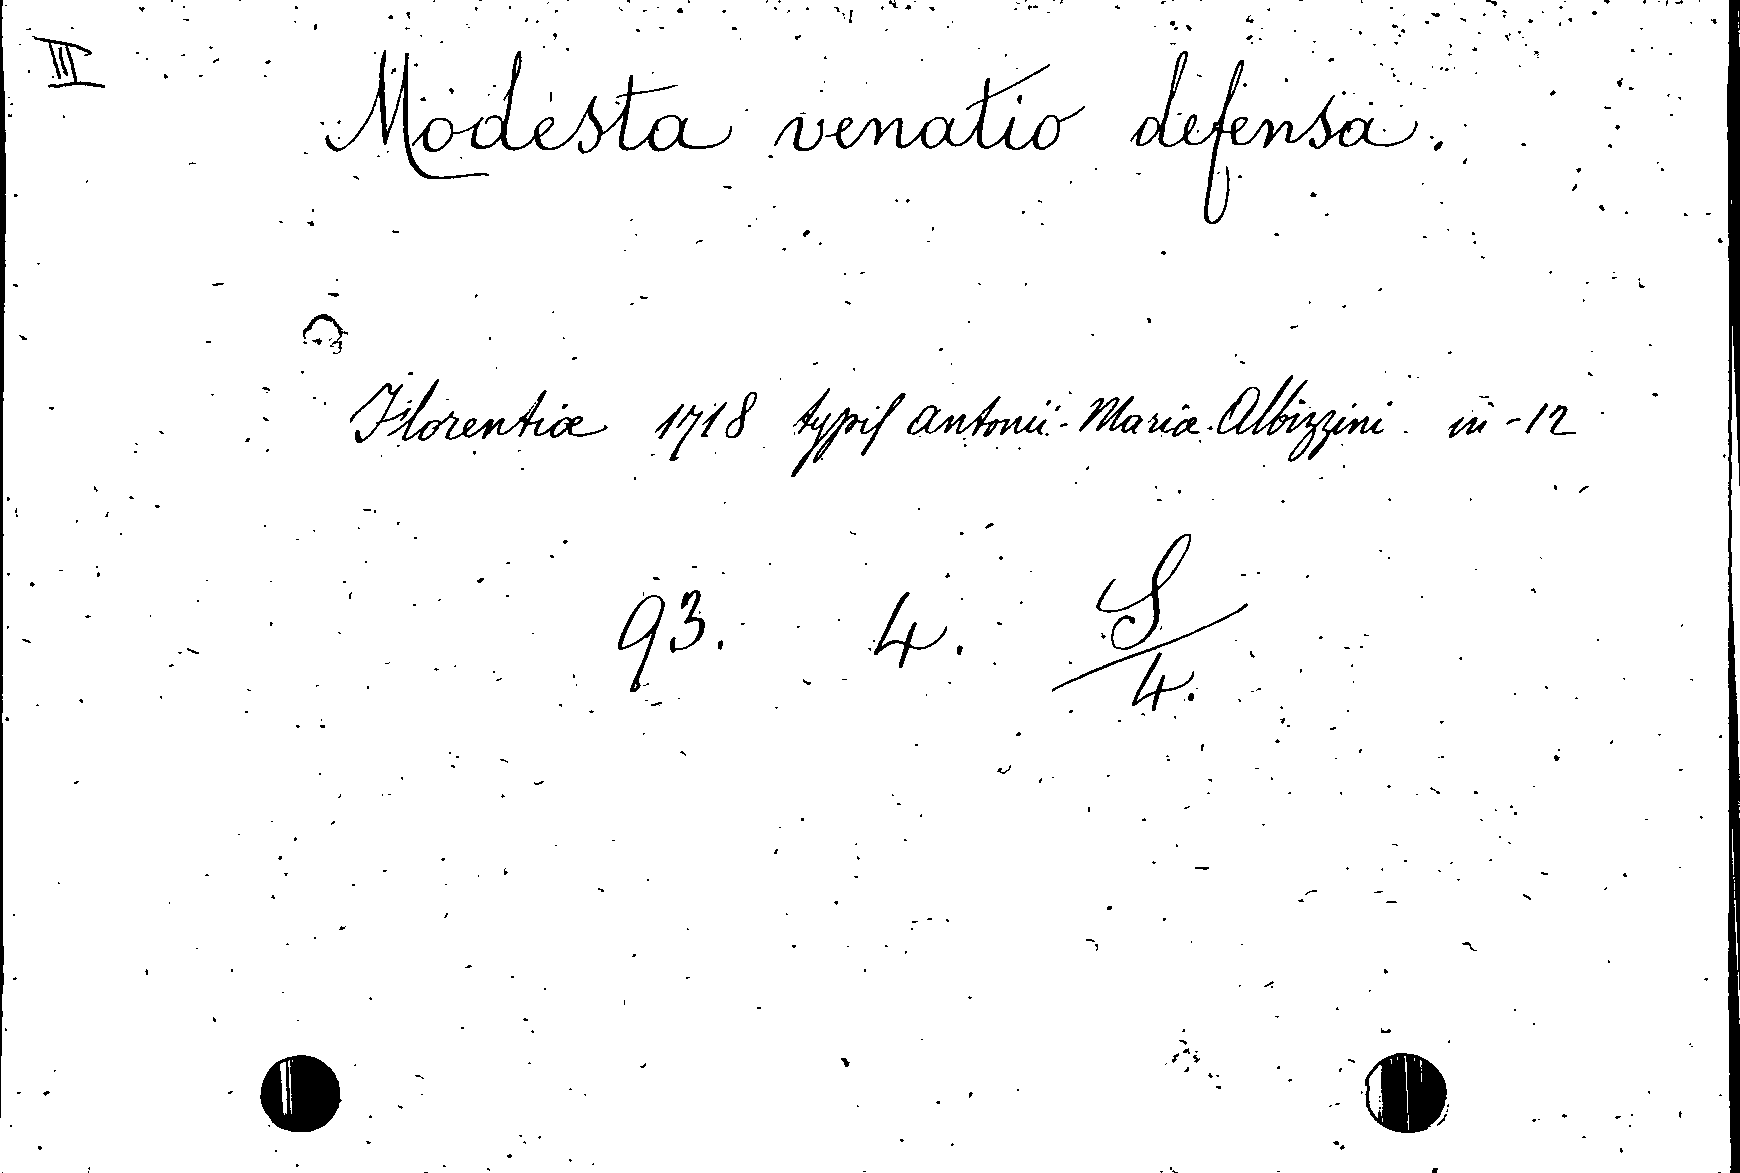 III
Modesta venatio defensa.
Florentiæ 1718 typis Antonii-Mariæ Albizzini in-12
93. 4. S/4.